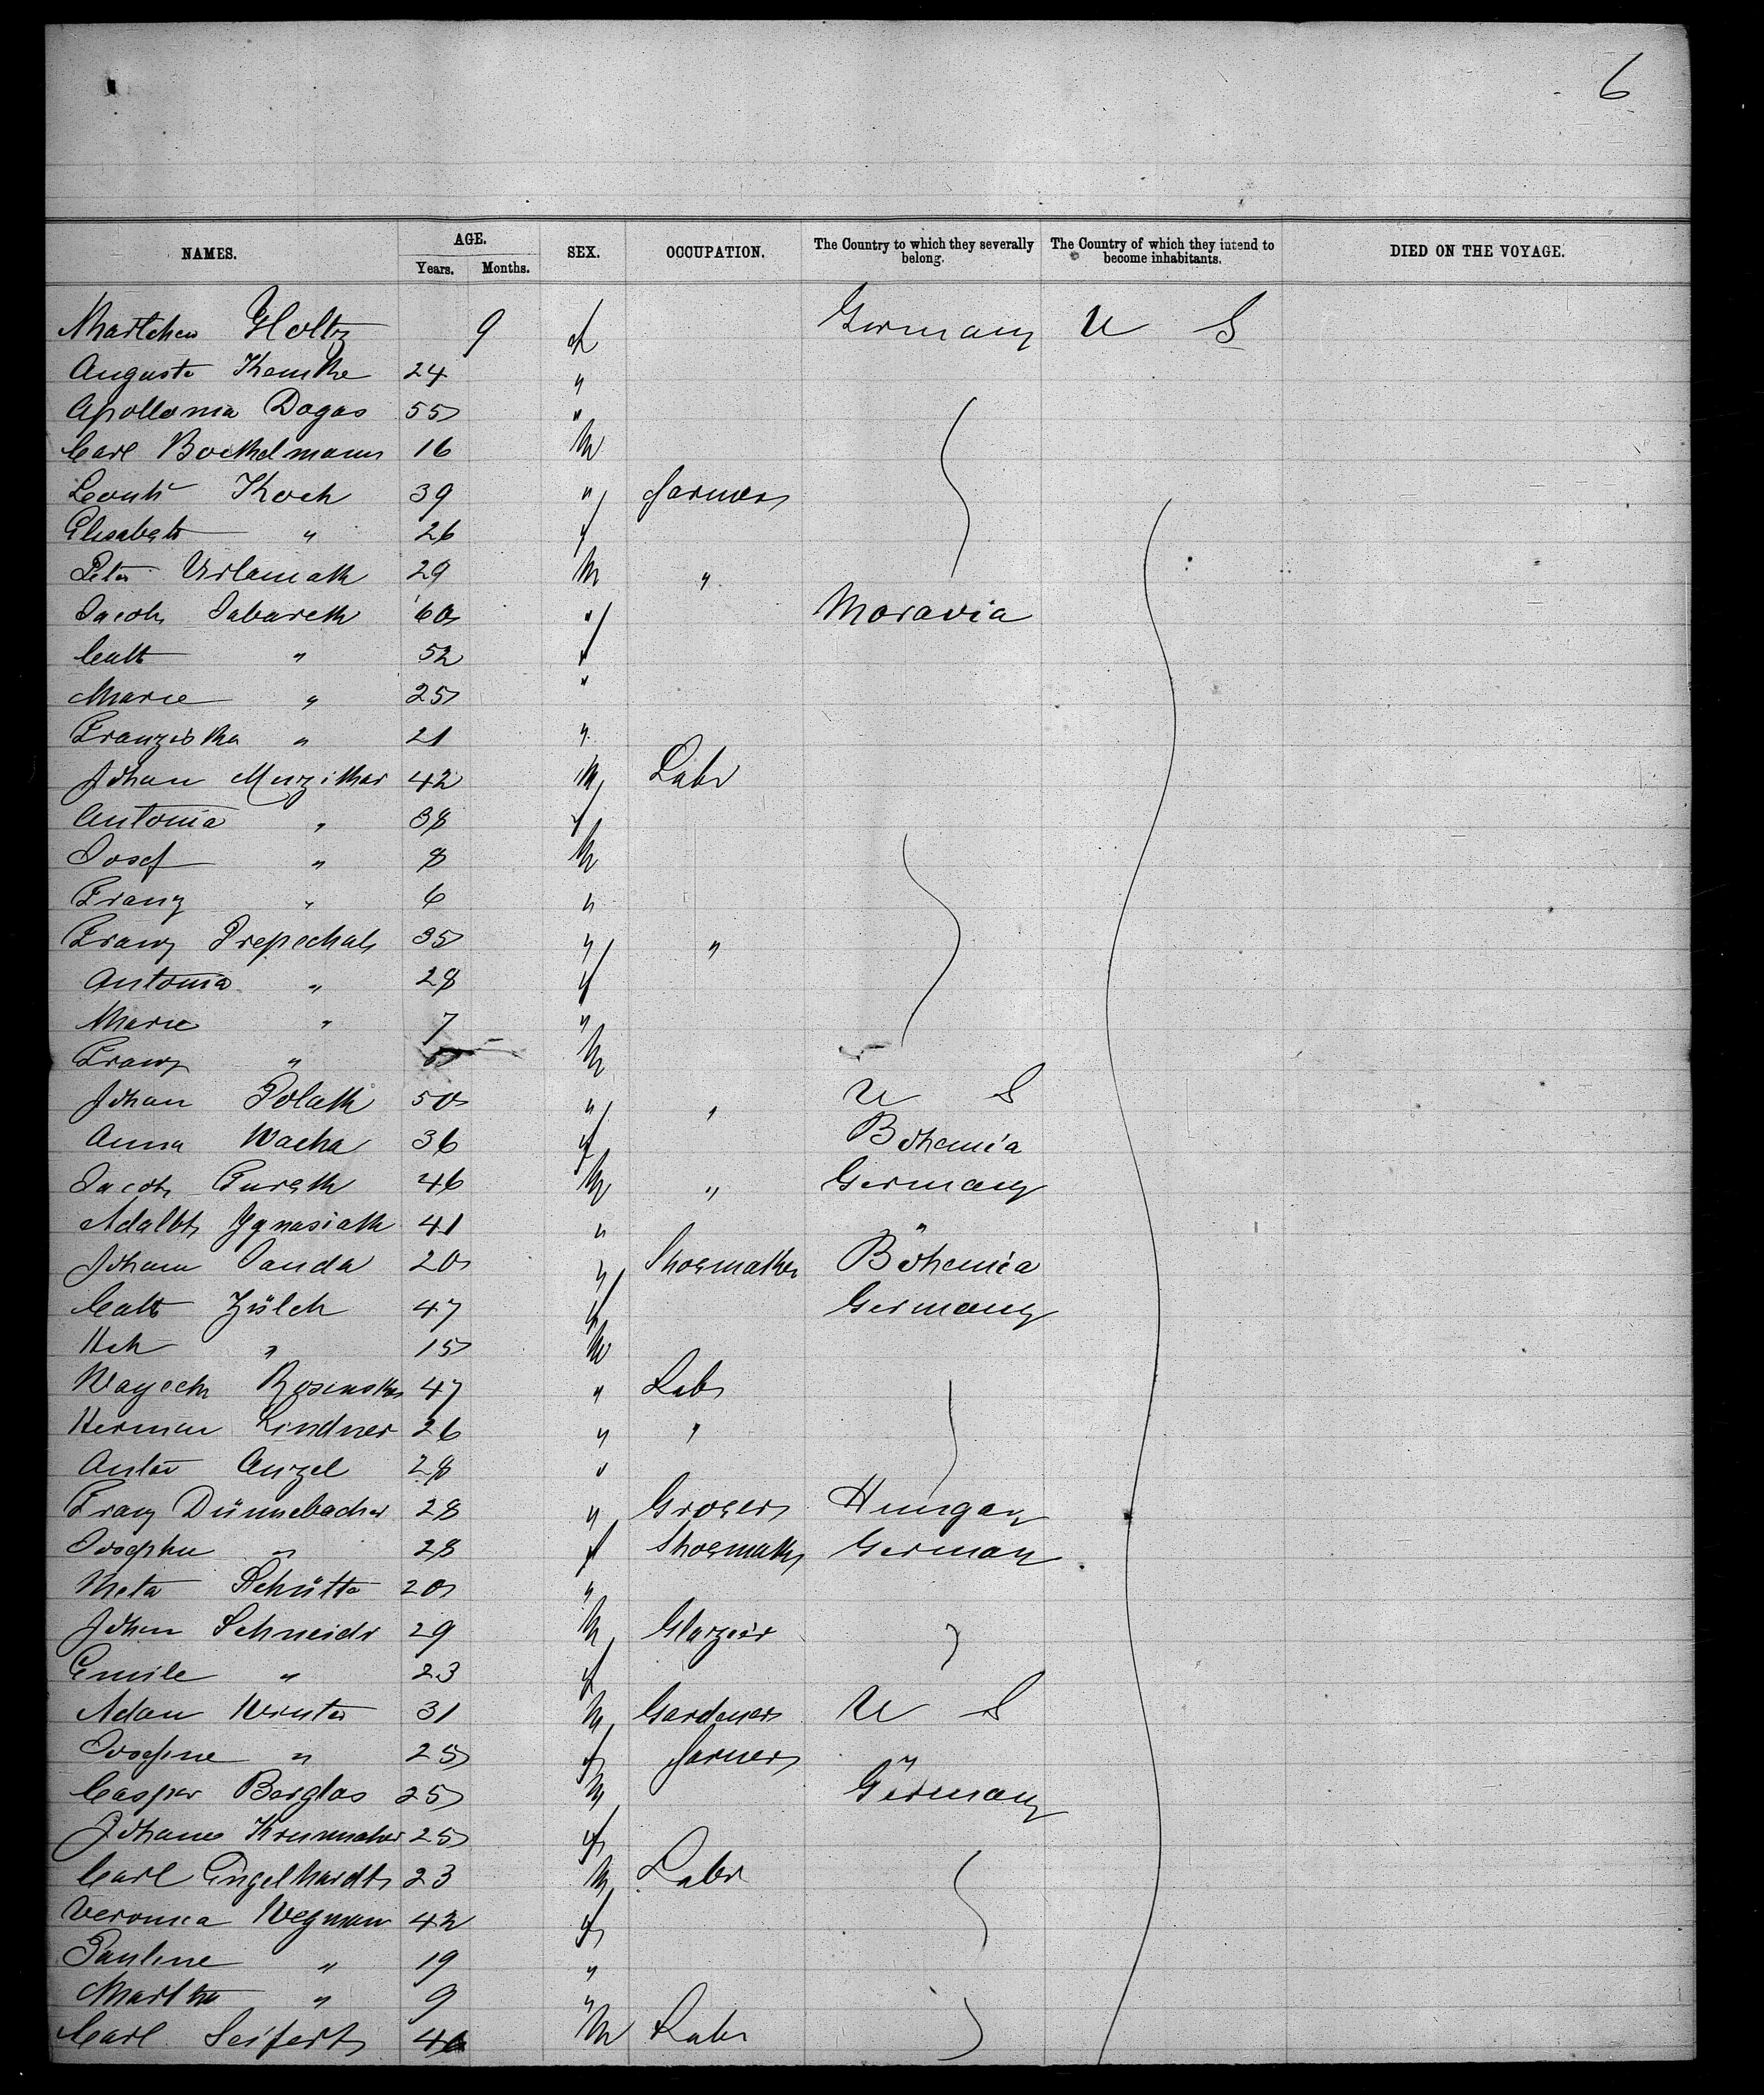 6
NAMES. AGE. SEX. OCCUPATION. The Country to which they severally belong. The Country of which they intend to become inhabitants. DIED ON THE VOYAGE.
Years. Months.
Holtz 9 f Germany U S
Auguste Kemke 24 "
Apollonia Dogas 55 "
Carl Boekelmann 16 M
Koch 39 " farmer
Elisabeth " 26 f
Peter 29 M "
Jacob 60 " Moravia
Cath " 52 f
Marie " 25 "
Franziska " 21 "
Johan 42 M Labr
Antonia " 38 f
Josef " 8 M
Franz " 6 "
Franz Prepechal 35 " "
Antonia " 28 f
Marie " 7 "
Franz " M
Johan Polak 50 " " U S
Anna Wacha 36 f Bohemia
Jacob 46 M " Germany
Adalbt Ignasiak 41 " "
Johann Janda 20 " Shoemaker Bohemia
Cath Zülch 47 f Germany
Hch " 15 M
47 " Lab
Herman Lindner 26 " "
Anton Anzel 28 "
Franz Dünnebacher 28 " Grocer Hungary
" 28 f Shoemak Germany
Meta Schütte 20 "
Johan Schneidr 29 M Glazier
Emile " 23 f
Adam Winter 31 M Gardener U S
Josefine " 25 f farmer "
Casper Berglas 25 M Germany
25 f
Carl Engelhardt 23 M Labr
Veronica Wegman 42 f
Pauline " 19 "
Martha " 9 "
Carl Seifert M Labr